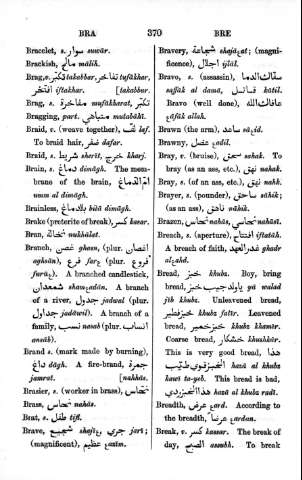 BRA 370 BRE
Bracelet, s. سوار suwár.
Brackish, مالح málih.
Brag, تكبّر takabbar, تفاخر tufákhar,
افتخر iftakhar. [takabbur.
Brag, s. مفاخرة mufákharat, تكبّر
Bragging, part. متباهي mutabáhí.
Braid, v. (weave together), لف laf.
To braid hair, ضفر dafar.
Braid, s. شريط sherít, خرج kharj.
Brain, s. دماغ dimágh. The mem-
brane of the brain, امّ الدماغ
umm al dimágh.
Brainless, بلا دماغ bilá dimágh.
Brake (preterite of break), كسر kasar.
Bran, نخالة nukhálat.
Branch, غصن ghasn, (plur. اغصان
aghsán), فرع far (plur. فروع
furú). A branched candlestick,
شمعدان shamadán. A branch
of a river, جدول jadwal (plur.
جداول jadáwil). A branch of a
family, نسب nasab (plur. انساب
ansáb).
Brand s. (mark made by burning),
داغ dágh. A fire-brand, جمرة
jamrat. [nahhás.
Brasier, s. (worker in brass), نحّاس
Brass, نحاس nahás.
Brat, s. طفل tifl.
Brave, شجيع, جري jarí;
(magnificent), عظيم
Bravery, شجاعة; (magni-
ficence), اجلال ijlál.
Bravo, s. (assassin), سفّاك الدما
saffák al damá, قاتل kátil.
Bravo (well done), عافاك الله
áfák allah.
Brawn (the arm), ساعد
Brawny, عضل
Bray, v. (bruise), سحق sahak. To
bray (as an ass, etc.), نهق nahak.
Bray, s. (of an ass, etc.), نهق nahk.
Brayer, s. (pounder), ساحق sáhik;
(as an ass), ناهق náhik.
Brazen, نحاس nahás, نحاسي nahásí.
Breach, s. (aperture), افتتاح iftátáh.
A breach of faith, غدر العهد ghadr
al
Bread, خبز khubz. Boy, bring
bread, يا ولد جيب خبز yá walad
jíb khubz. Unleavened bread,
خبز فطير khubz fatír. Leavened
bread, خبز خمير khubz khamír.
Coarse bread, خشكار khushkár.
This is very good bread, هذا
الخبز قوي طيب hazá al khubz
kawí ta-yeb. This bread is bad,
هذا الخبز ردي hazá al khubz radí.
Breadth, عرض. According to
the breadth, عرضا
Break, v. كسر kasar. The break of
day, الصبح To break